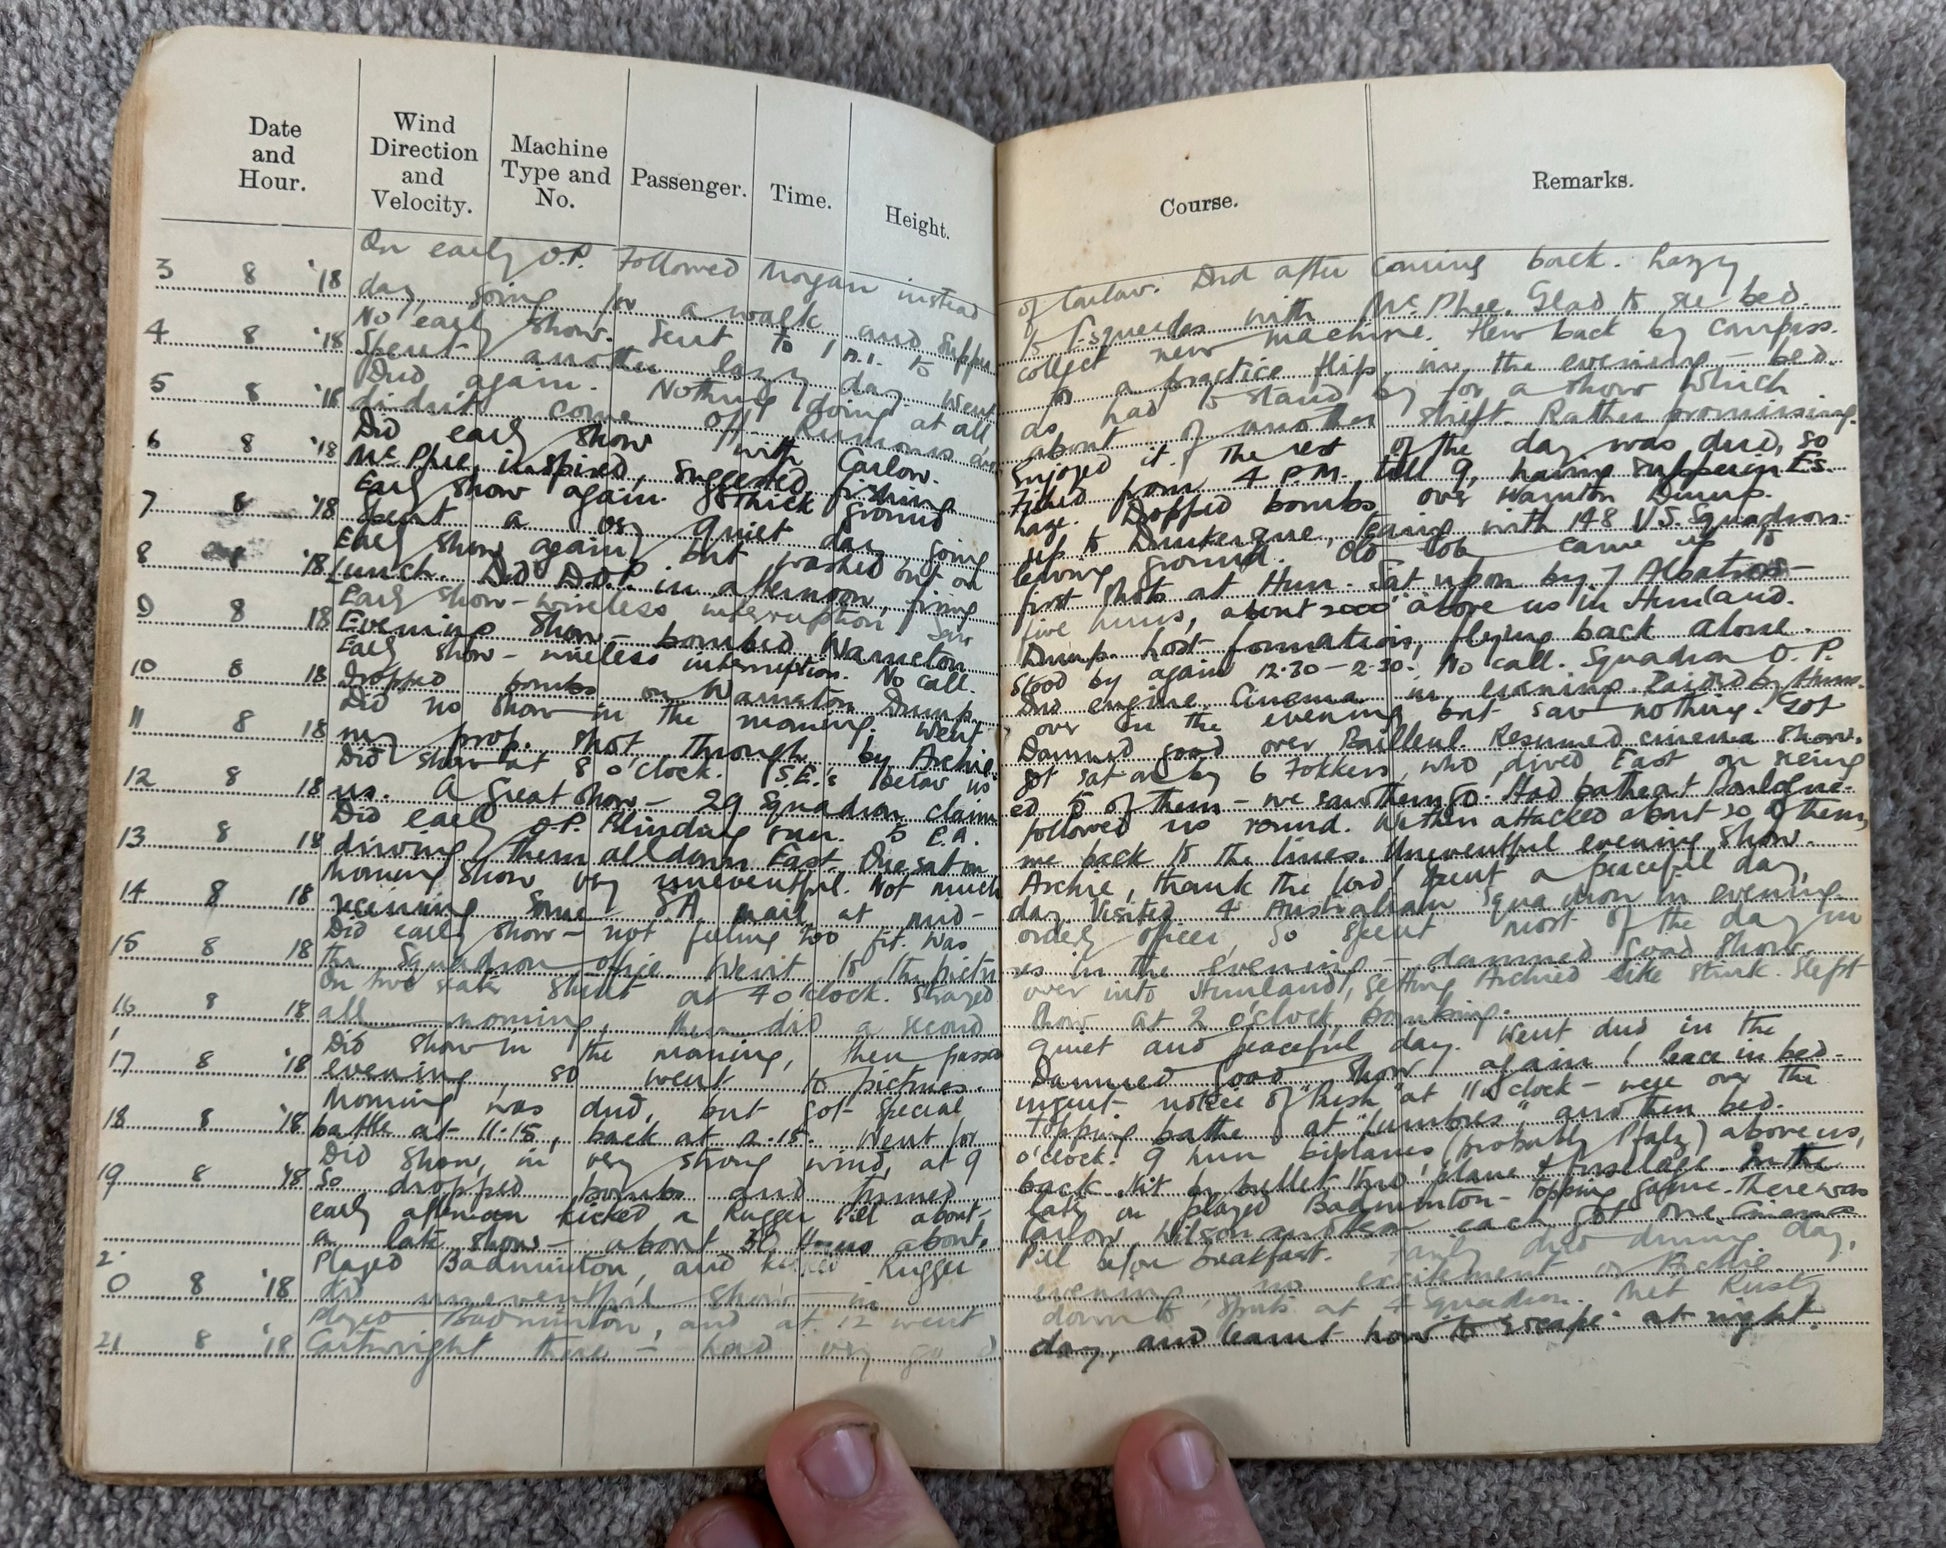 Date and Hour.
Wind Direction and Velocity.
Machine Type and No.
Passenger.
Time.
Height.
Course.
Remarks.
3 8 '18 On early O.P. Followed Mogan instead of Carlow. Dud after coming back. hazy
day, going for a walk and supper to Esquerdes with McPhee. Glad to see bed.
4 8 '18 No early show. Sent to 1 A.I. to collect new machine. Flew back by compass.
Spent another lazy day. Went for a practice flip, in the evening – bed.
5 8 '18 Dud again. Nothing doing at all as had to stand by for a show which
didn't come off. Rumours about of another shift. Rather promising.
6 8 '18 Did early show with Carlow. Enjoyed it. The rest of the day was dud, so
McPhee, inspired, suggested fishing. Fished from 4 P.M. till 9, having supper in Es.
7 8 '18 Early show again. Thick ground haze. Dropped bombs over Warneton Dump.
Spent a quiet day going to Dunkerque, teaing with 148 U.S. Squadron.
8 8 '18 Early show again, but washed out on leaving ground. Old came up to
lunch. Did D.O.P. in afternoon, firing first shots at Hun. Sat upon by 7 Albatros –
9 8 18 Early show – wireless interruption saw five huns, about 2000' above us in Hunland.
Evening show – bombed Warneton Dump. Lost formation, flying back alone.
10 8 18 Early show – wireless interruption. No call. Stood by again 12.30 – 2.30. No call. Squadron O.P.
Dropped bombs on Warneton Dump. Dud engine. Cinema in evening. Raided by Huns.
11 8 18 Did no show in the morning. Went over in the evening but saw nothing. Got
my prop. shot through by Archie. Damned good over Bailleul. Resumed cinema show.
12 8 18 Did show at 8 o'clock. (S.E.'s below us) got sat on by 6 Fokkers, who dived East on seeing
us. A great show – 29 Squadron claimed 5 of them – we saw them go. Had bathe at Boulogne.
13 8 18 Did early O.P. Blinding sun. 5 E.A. followed us round. Within attacked about 20 of them,
driving them all down East. One sat on me back to the lines. Uneventful evening show.
14 8 18 Morning show very uneventful. Not much Archie, thank the lord! Spent a peaceful day,
receiving some S.A. mail at mid-day. Visited 4 Australian Squadron in evening.
15 8 18 Did early show – not feeling too fit. Was orderly officer, so spent most of the day in
the Squadron office. Went to the pictures in the evening – damned good show.
16 8 18 On two seater stunt at 4 o'clock. Strayed over into Hunland, getting Archied like stink. Slept
all morning, then did a second show at 2 o'clock, bombing.
17 8 '18 Did show in the morning, then passed quiet and peaceful day. Went dud in the
evening, so went to pictures. Damned good show again & leave in bed.
18 8 '18 Morning was dud, but got special urgent notice of "Push" at 11 o'clock – were over the
battle at 11.15, back at 2.15. Went for topping bathe at "Lumbres" and then bed.
19 8 '18 Did show, in very strong wind, at 9 o'clock. 9 hun biplanes (probably Pfalz) above us,
so dropped bombs and turned back. Hit by bullet thro' plane & fuselage. In the
early afternoon kicked a Rugger Pill about – later on played Badminton – topping game. There was
a late show – about 30 Huns about. Carlow, Wilson and each got one.
20 8 '18 Played Badminton, and kicked Rugger Pill before breakfast. Fairly dud during day,
did uneventful show in evening no excitement or Archie.
21 8 '18 Played Badminton, and at 12 went down to sports at 4 Squadron. Met Rusty
Cartwright there – had very good day, and learnt how to escape at night.